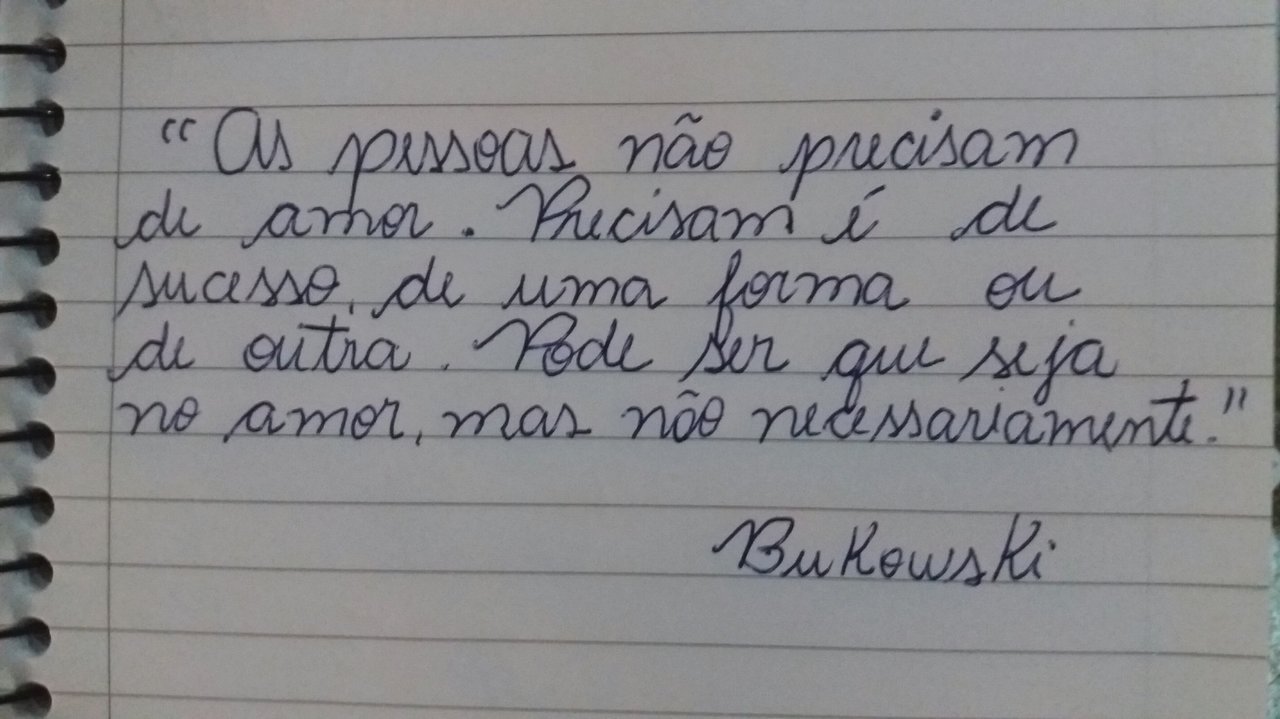 “As pessoas não precisam
de amor. Precisam é de
sucesso, de uma forma ou
de outra. Pode ser que seja
no amor, mas não necessariamente.”
Bukowski